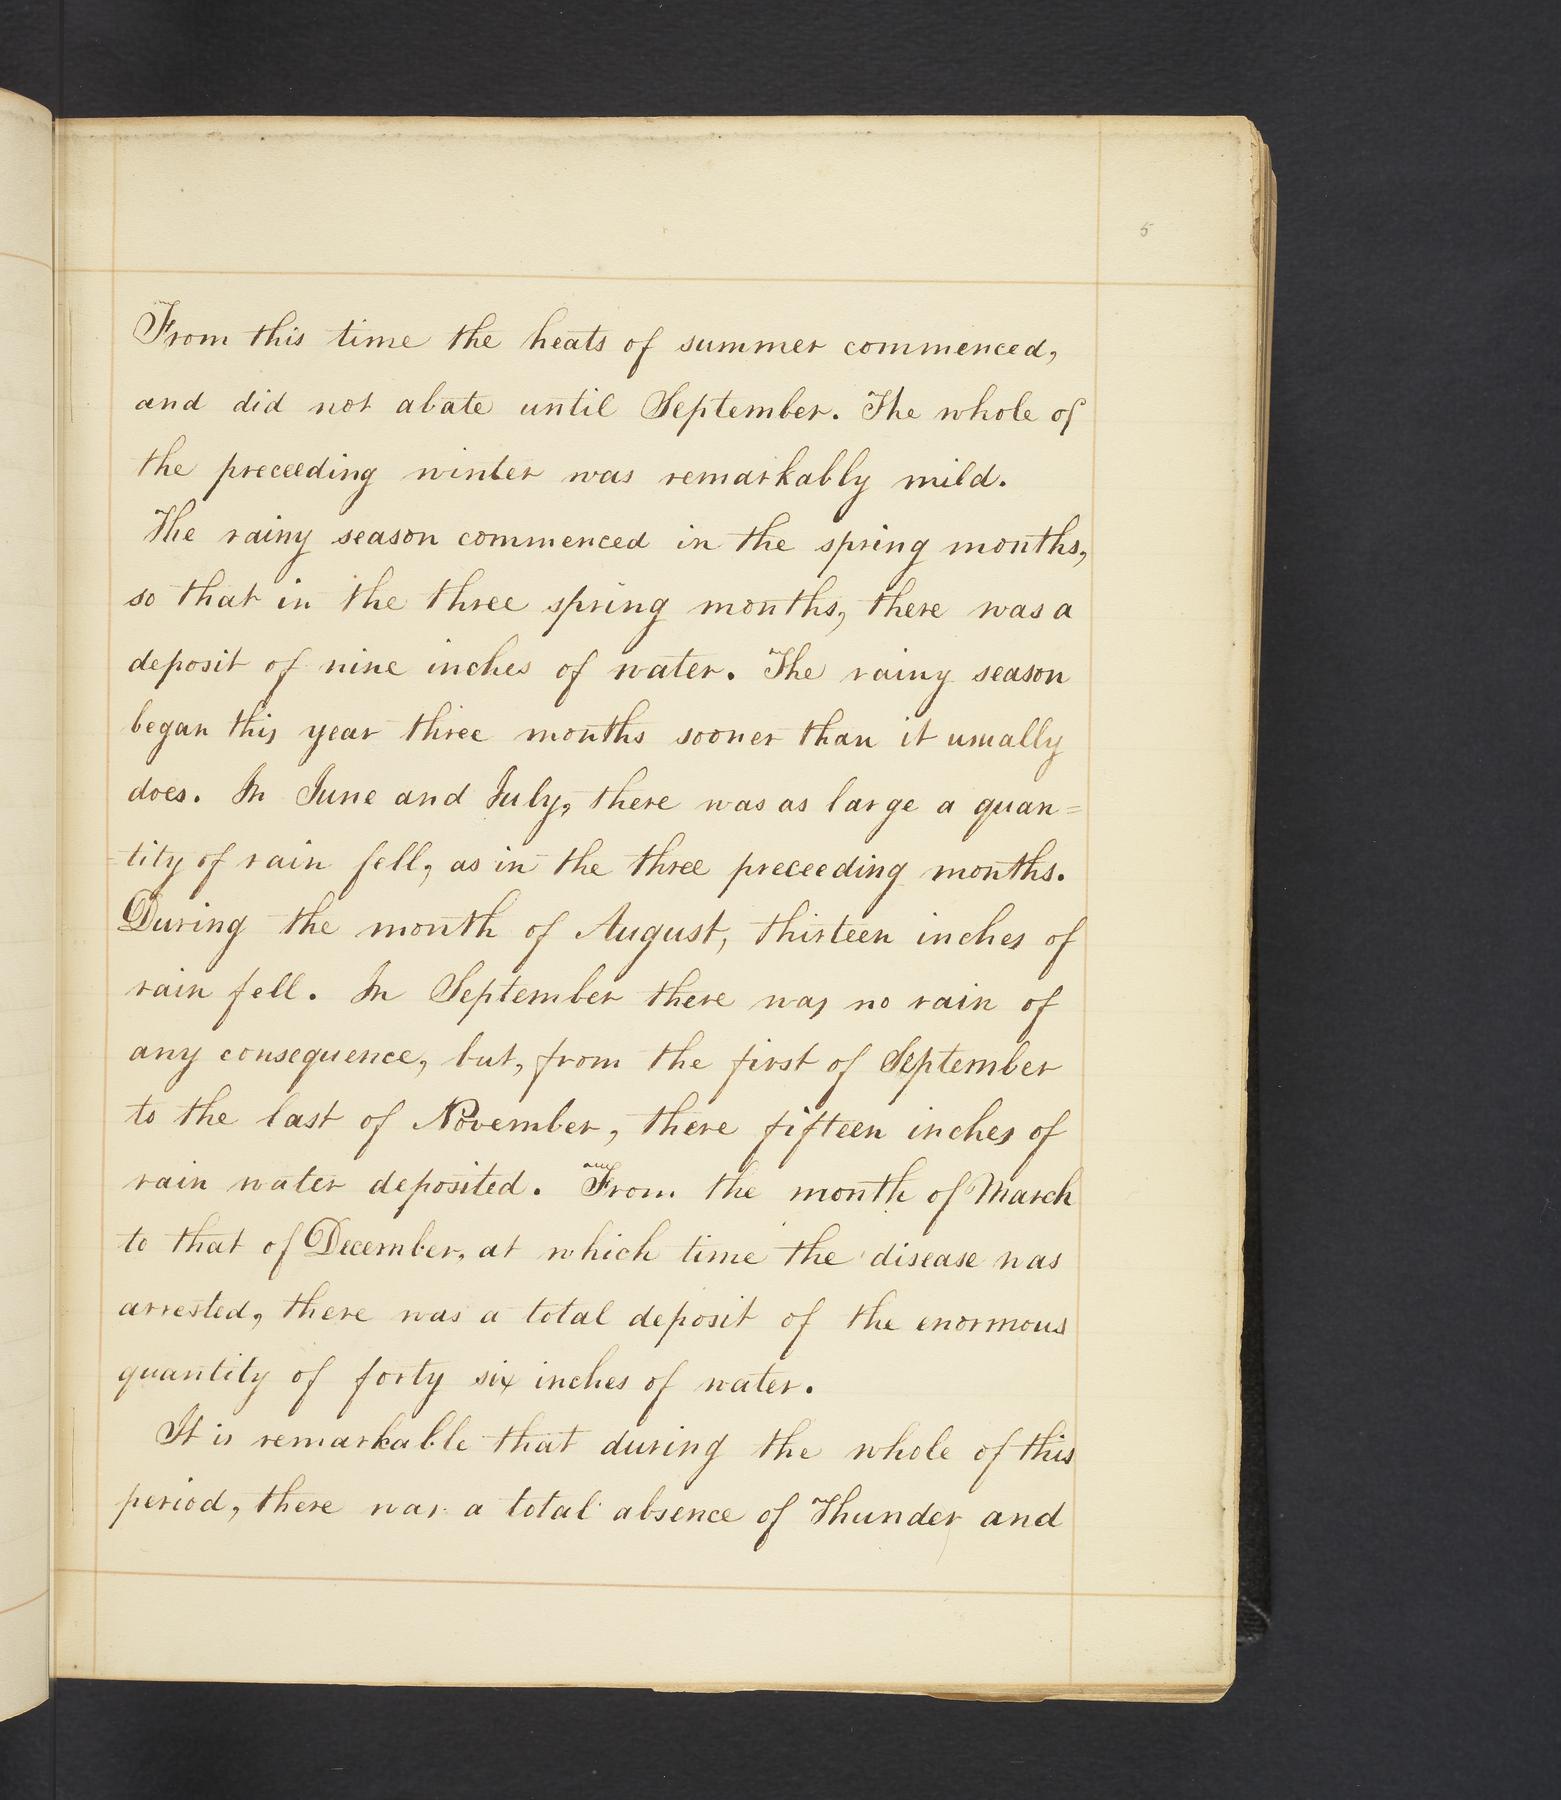 5
From this time the heats of summer commenced,
and did not abate until September. The whole of
the preceeding winter was remarkably mild.
The rainy season commenced in the spring months,
so that in the three spring months, there was a
deposit of nine inches of water. The rainy season
began this year three months sooner than it usually
does. In June and July, there was as large a quan=
=tity of rain fell, as in the three preceeding months.
During the month of August, thirteen inches of
rain fell. In September there was no rain of
any consequence, but, from the first of September
to the last of November, there fifteen inches of
rain water deposited. From the month of March
to that of December, at which time the disease was
arrested, there was a total deposit of the enormous
quantity of forty six inches of water.
It is remarkable that during the whole of this
period, there was a total absence of Thunder and